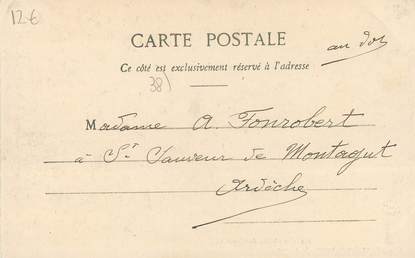 12€
CARTE POSTALE
au dos
Ce côté est exclusivement réservé à l'adresse
38)
Madame A. Fonrobert
à St Sauveur de Montagut
Ardèche